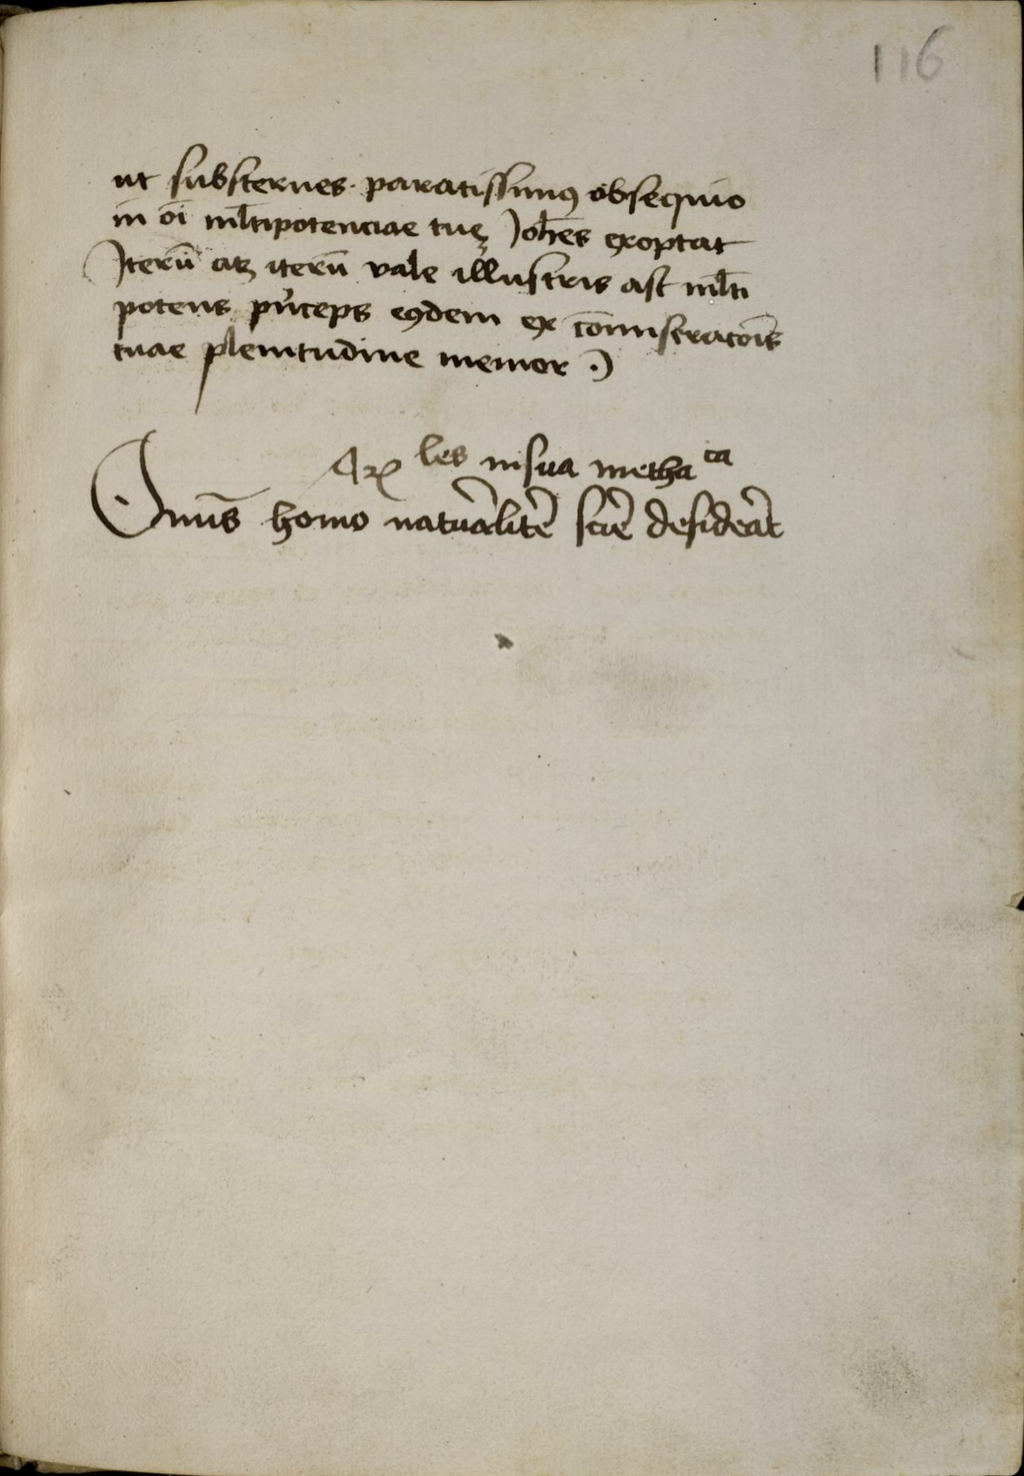 116
ut substernes. paratissimꝰ obsequio
in oī ml̄tipotenciae tuę Joh̄es exoptat
Iterū atꝫ iterū vale illustris ast ml̄ti
potens pͥnceps eꝯdem ex cōmiseratōīs
tuae plenitudine memor
Arꝭ les in sua metha ca
Omīs homo natuᷓlitē sciē desideᷓt